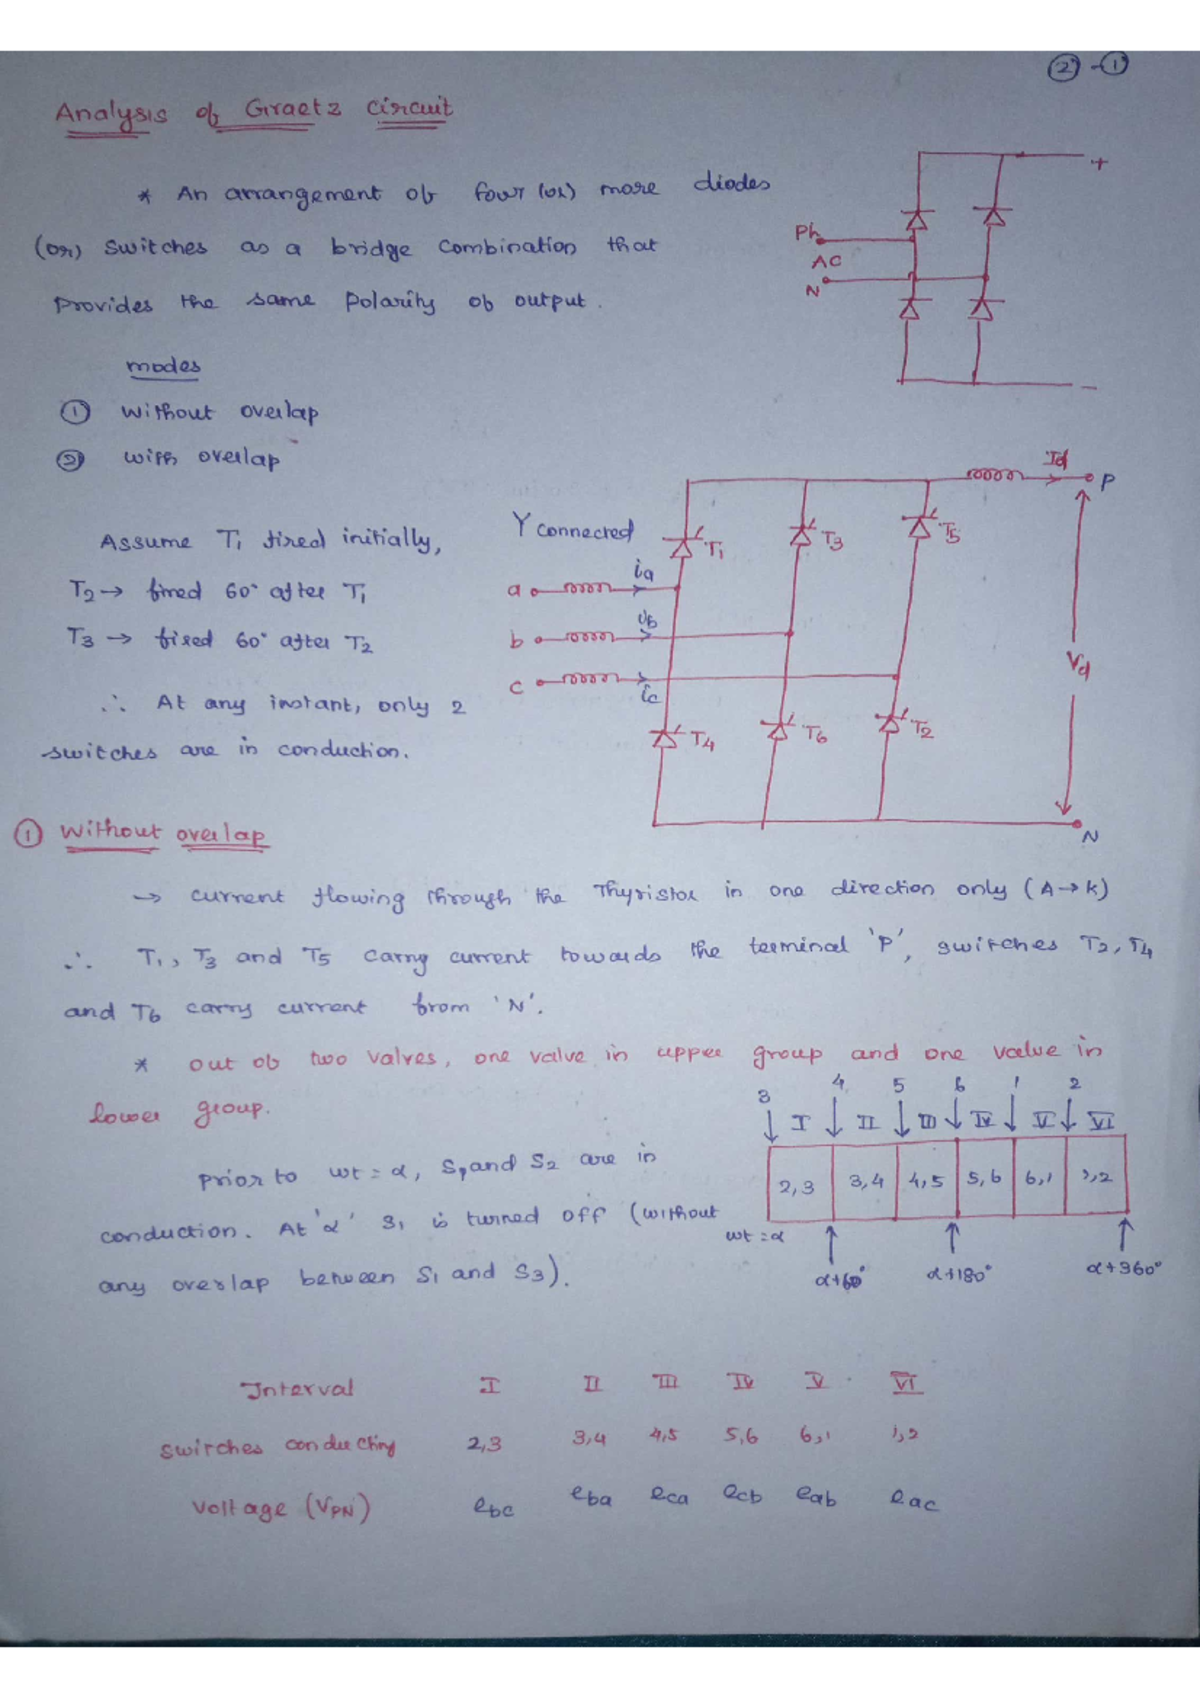 ② - ①
Analysis of Graetz circuit
* An arrangement of four (or) more diodes
(or) switches as a bridge combination that
provides the same polarity of output.
+
Ph
AC
N
-
modes
① without overlap
② with overlap
Assume T1 fired initially,
T2 → fired 60° after T1
T3 → fired 60° after T2
∴ At any instant, only 2
switches are in conduction.
Y connected
Id
P
T1 T3 T5
a ia
b ib
c ic
Vd
T4 T6 T2
N
① without overlap
→ current flowing through the Thyristor in one direction only (A→k)
∴ T1, T3 and T5 carry current towards the terminal 'P', switches T2, T4
and T6 carry current from 'N'.
* out of two valves, one valve in upper group and one valve in
lower group.
prior to wt = α, S1 and S2 are in
conduction. At 'α' S1 is turned off (without
any overlap between S1 and S3).
3 4 5 6 1 2
I II III IV V VI
2,3 3,4 4,5 5,6 6,1 1,2
wt = α α+60° α+180° α+360°
Interval I II III IV V VI
switches conducting 2,3 3,4 4,5 5,6 6,1 1,2
voltage (VPN) ebc eba eca ecb eab eac